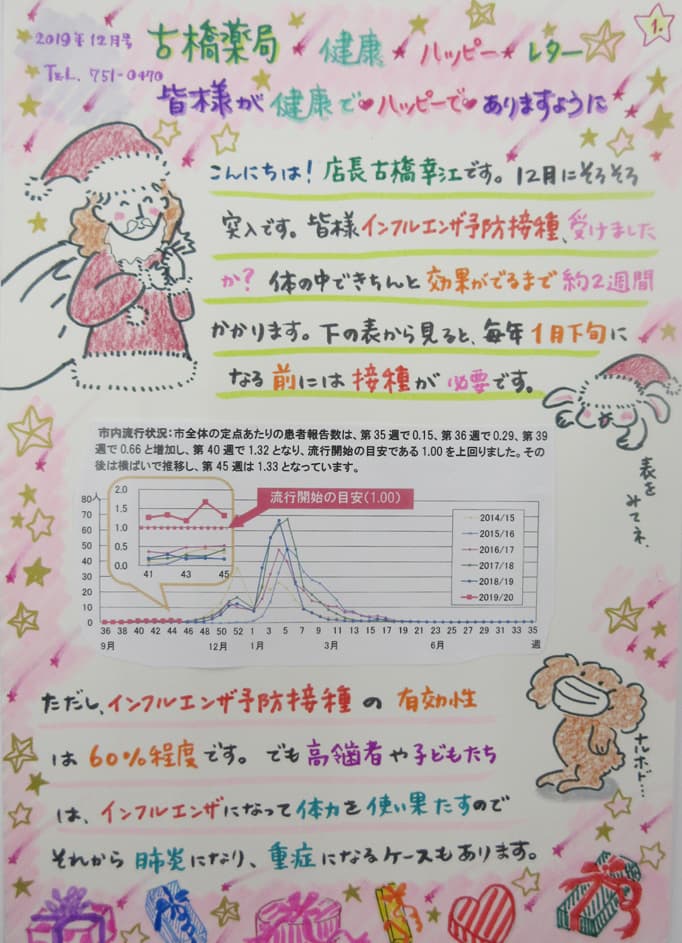 1.
2019年12月号
TEL. 751-0470
古橋薬局★健康★ハッピー★レター
皆様が健康で♥ハッピーで♥ありますように
こんにちは！店長古橋幸江です。12月にそろそろ
突入です。皆様インフルエンザ予防接種、受けました
か？体の中できちんと効果がでるまで約2週間
かかります。下の表から見ると、毎年1月下旬に
なる前には接種が必要です。
表を
みてネ。
市内流行状況：市全体の定点あたりの患者報告数は、第35週で0.15、第36週で0.29、第39
週で0.66と増加し、第40週で1.32となり、流行開始の目安である1.00を上回りました。その
後は横ばいで推移し、第45週は1.33となっています。
流行開始の目安(1.00)
2.0
1.5
1.0
0.5
0.0
41 43 45
80人
70
60
50
40
30
20
10
0
2014/15
2015/16
2016/17
2017/18
2018/19
2019/20
36 38 40 42 44 46 48 50 52 1 3 5 7 9 11 13 15 17 19 21 23 25 27 29 31 33 35
9月 12月 1月 3月 6月 週
ただし、インフルエンザ予防接種の有効性
は60%程度です。でも高齢者や子どもたち
は、インフルエンザになって体力を使い果たすので
それから肺炎になり、重症になるケースもあります。
ナルホド…